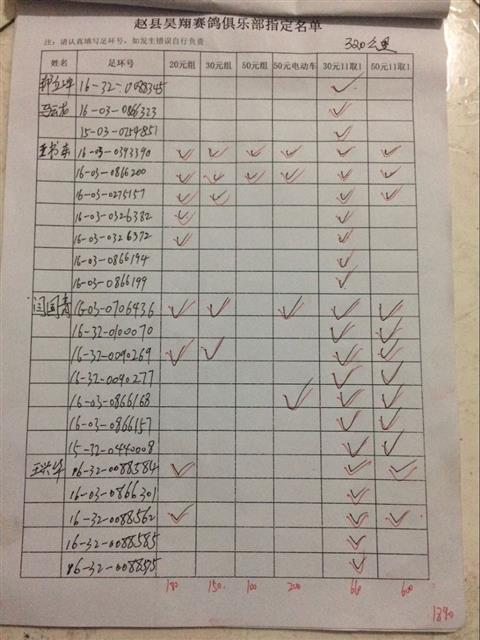 赵县昊翔赛鸽俱乐部指定名单
注：请认真填写足环号，如发生错误自行负责 320公里
姓名 足环号 20元组 30元组 50元组 50元电动车 30元11取1 50元11取1
16-32-0088345
16-03-0866323
15-03-0254851
16-03-0393390
16-03-0866200
16-03-0275157
16-03-0326382
16-03-0326372
16-03-0866194
16-03-0866199
闫国青 16-03-0706436
16-32-0100070
16-32-0090269
16-32-0090277
16-03-0866168
16-03-0866157
15-32-0440008
王兴华 16-32-0088584
16-03-0866301
16-32-0088562
16-32-0088585
16-32-0088595
150 100 200 660 600
1890